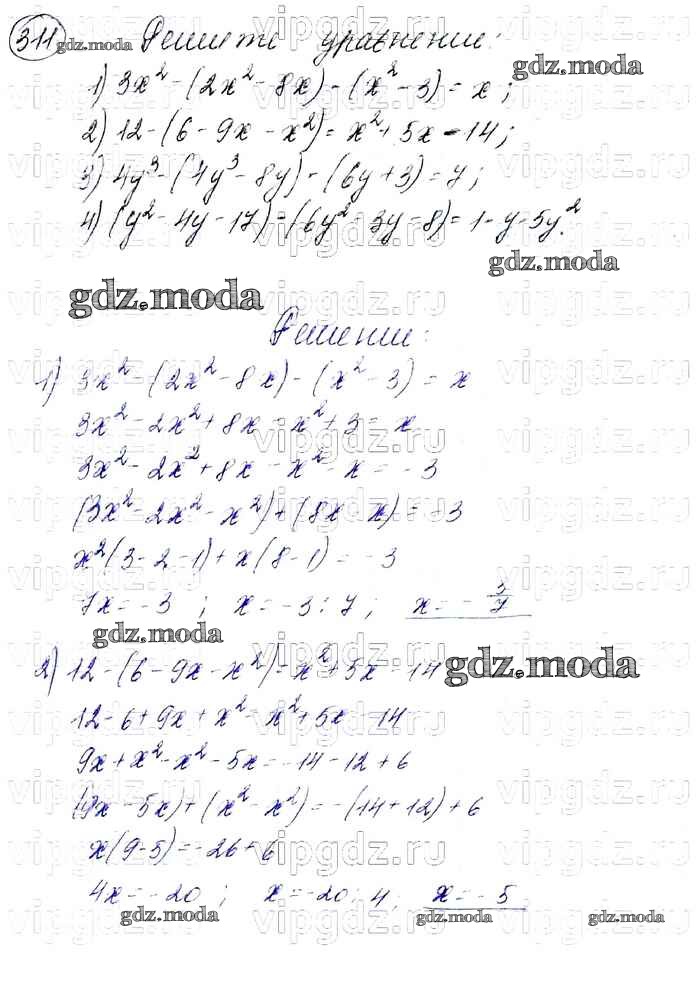 311 gdz.moda Решите уравнение:
1) 3x² - (2x² - 8x) - (x² - 3) = x;
2) 12 - (6 - 9x - x²) = x² + 5x - 14;
3) 4y³ - (4y³ - 8y) - (6y + 3) = 7;
4) (y² - 4y - 17) - (6y² - 3y - 8) = 1 - y - 5y².
gdz.moda
gdz.moda
Решение:
1) 3x² - (2x² - 8x) - (x² - 3) = x
3x² - 2x² + 8x - x² + 3 = x
3x² - 2x² + 8x - x² - x = -3
(3x² - 2x² - x²) + (8x - x) = -3
x²(3 - 2 - 1) + x(8 - 1) = -3
7x = -3 ; x = -3 : 7 ; x = - 3/7
gdz.moda
2) 12 - (6 - 9x - x²) = x² + 5x - 14
gdz.moda
12 - 6 + 9x + x² = x² + 5x - 14
9x + x² - x² - 5x = -14 - 12 + 6
(9x - 5x) + (x² - x²) = -(14 + 12) + 6
x(9 - 5) = -26 + 6
4x = -20 ; x = -20 : 4 ; x = -5
gdz.moda gdz.moda gdz.moda gdz.moda
vipgdz.ru